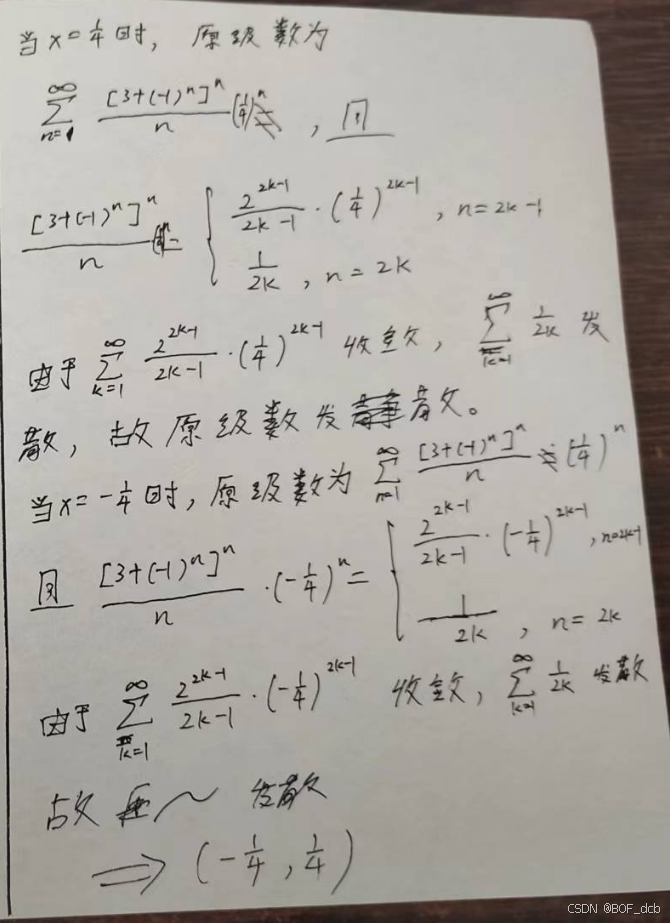 当 x = 1/4 时, 原级数为
∑_{n=1}^{∞} [3+(-1)^n]^n / n (1/4)^n , 因
[3+(-1)^n]^n / n = { 2^{2k-1}/(2k-1) · (1/4)^{2k-1} , n = 2k-1
1/(2k) , n = 2k
由于 ∑_{k=1}^{∞} 2^{2k-1}/(2k-1) · (1/4)^{2k-1} 收敛, ∑_{k=1}^{∞} 1/(2k) 发
散, 故原级数发散。
当 x = -1/4 时, 原级数为 ∑_{n=1}^{∞} [3+(-1)^n]^n / n (1/4)^n
因 [3+(-1)^n]^n / n · (-1/4)^n = { 2^{2k-1}/(2k-1) · (-1/4)^{2k-1} , n=2k-1
1/(2k) , n = 2k
由于 ∑_{k=1}^{∞} 2^{2k-1}/(2k-1) · (-1/4)^{2k-1} 收敛, ∑_{k=1}^{∞} 1/(2k) 发散
故 ~ 发散
⟹ (-1/4 , 1/4)
CSDN @BOF_dcb